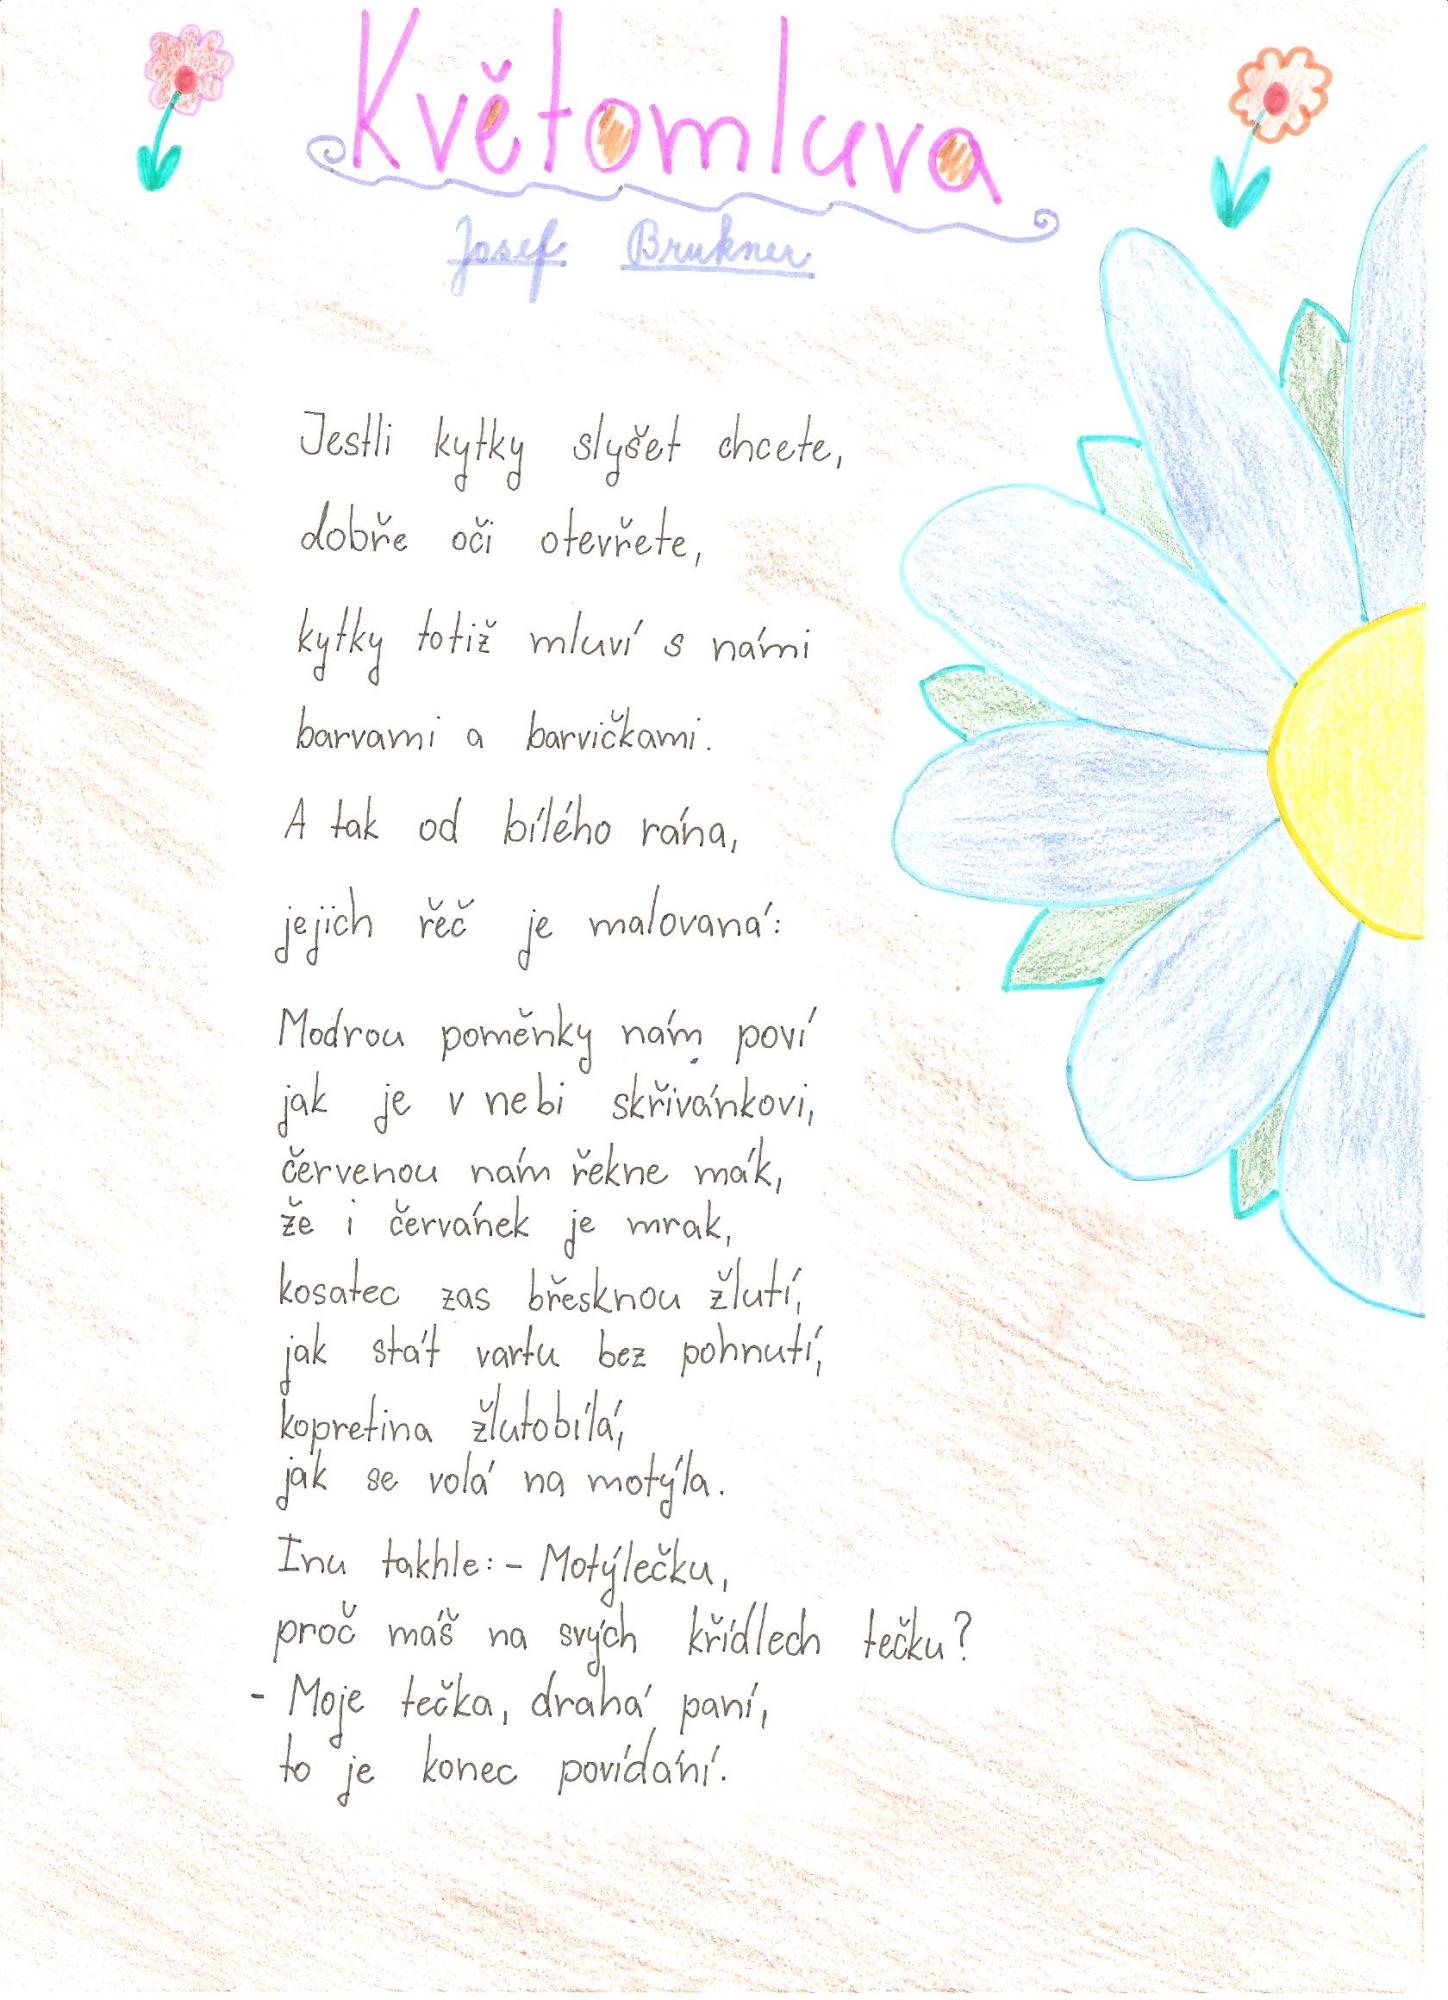 Květomluva
Josef Brukner
Jestli kytky slyšet chcete,
dobře oči otevřete,
kytky totiž mluví s námi
barvami a barvičkami.
A tak od bílého rána,
jejich řěč je malovaná:
Modrou poměnky nám poví
jak je v nebi skřivánkovi,
červenou nám řekne mák,
že i červánek je mrak,
kosatec zas břesknou žlutí,
jak stát vartu bez pohnutí,
kopretina žlutobílá,
jak se volá na motýla.
Inu takhle: - Motýlečku,
proč máš na svých křídlech tečku?
- Moje tečka, drahá paní,
to je konec povídání.